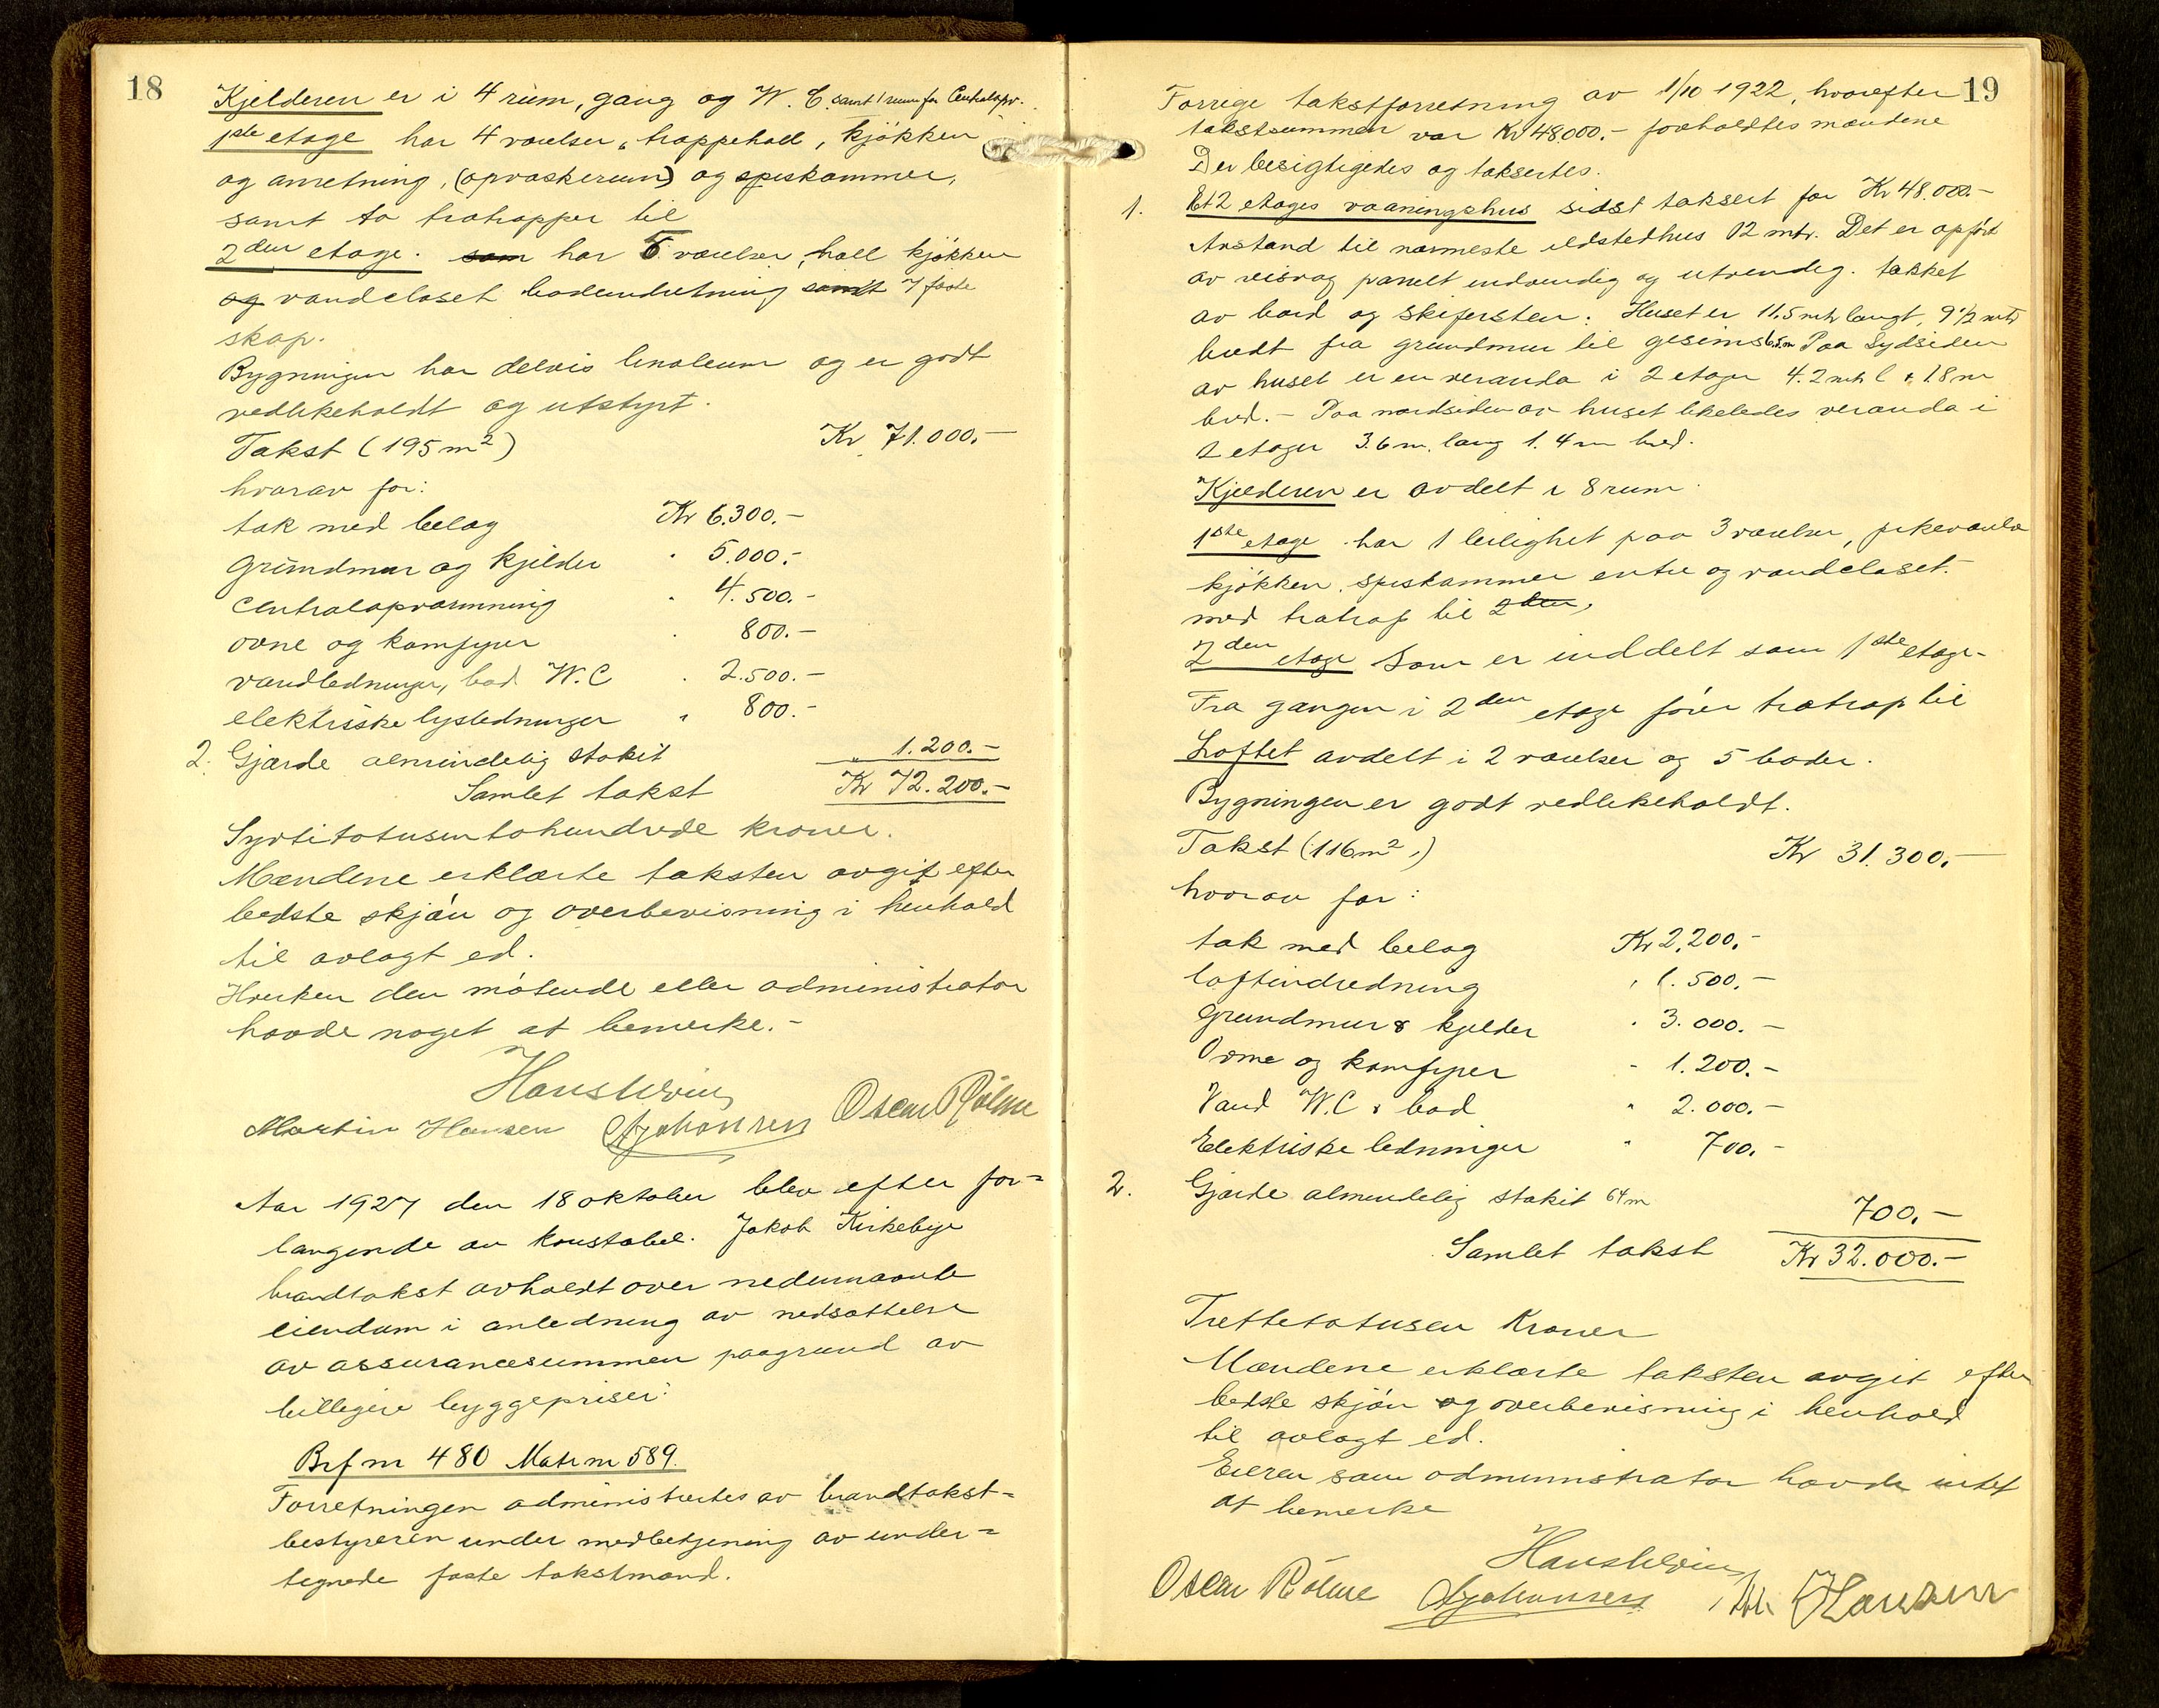 18
Kjelderen er i 4 rum, gang og W. C. samt 1 rum for Centralopv.
1ste etage har 4 værelser, trappehall, kjøkken
og anretning, (opvaskerum) og spiskammer,
samt to trætrapper til
2den etage. som har 5 værelser, hall kjøkken
og vandcloset badeindretning samt 7 faste
skap.
Bygningen har delvis linoleum og er godt
vedlikeholdt og utstyrt.
Takst (195 m2) Kr 71.000.-
hvorav for:
tak med belæg Kr 6.300.-
grundmur og kjelder " 5.000.-
Centralopvarmning " 4.500.-
ovne og komfyrer " 800.-
vandledninger, bad W.C " 2.500.-
elektriske lysledninger " 800.-
2. Gjærde almindelig stakit " 1.200.-
Samlet takst Kr 72.200.-
Syvtitotusentohundrede kroner.
Mændene erklærte taksten avgit efter
bedste skjøn og overbevisning i henhold
til avlagt ed.
Hverken den møtende eller administrator
havde noget at bemerke.-
Martin Hansen A Johansen Oscar Rölme
Aar 1927 den 18 oktober blev efter for=
langende av konstabel. Jakob Kirkebye
brandtakst avholdt over nedennævnte
eiendom i anledning av nedsættelse
av assurancesummen paagrund av
billigere byggepriser:
Brf nr 480 Matr nr 589.
Forretningen administrertes av brandtakst=
bestyreren under medbetjening av under=
tegnede faste takstmænd.
19
Forrige takstforretning av 1/10 1922, hvorefter
takstsummen var Kr 48.000.- foreholdtes mændene
Der besigtigedes og taksertes.
1. Et 2 etages vaaningshus sidst taksert for Kr 48.000.-
Avstand til nærmeste ildstedhus 12 mtr. Det er opført
av reisverk panelt indvendig og utvendig. tækket
av bord og skifersten. Huset er 11.5 mtr langt, 9 1/2 mtr
bredt fra grundmur til gesims 6.5m Paa Sydsiden
av huset er en veranda i 2 etager 4.2 mtr l & 1.8 m
bred. - Paa nordsiden av huset likeledes veranda i
2 etager 3.6 m. lang 1.4 m bred.
Kjelderen er avdelt i 8 rum.
1ste etage har 1 leilighet paa 3 værelser, pikeværelse
kjøkken, spiskammer entre og vandcloset.
med trætrap til 2den,
2den etage som er inddelt som 1ste etage.
Fra gangen i 2den etage fører trætrap til
Loftet avdelt i 2 værelser og 5 boder.
Bygningen er godt vedlikeholdt.
Takst (116 m2.) Kr 31.300.-
hvorav for:
tak med belæg Kr 2.200.-
loftindredning " 1.500.-
Grundmur & kjelder " 3.000.-
Ovne og komfyrer " 1.200.-
Vand W.C & bad " 2.000.-
Elektriske ledninger " 700.-
2. Gjærde almindelig stakit 64 m 700.-
Samlet takst Kr 32.000.-
Trettetotusen Kroner
Mændene erklærte taksten avgit efter
bedste skjøn og overbevisning i henhold
til avlagt ed.
Eieren som administrator havde intet
at bemerke
Oscar Rölme A Johansen M. Hansen